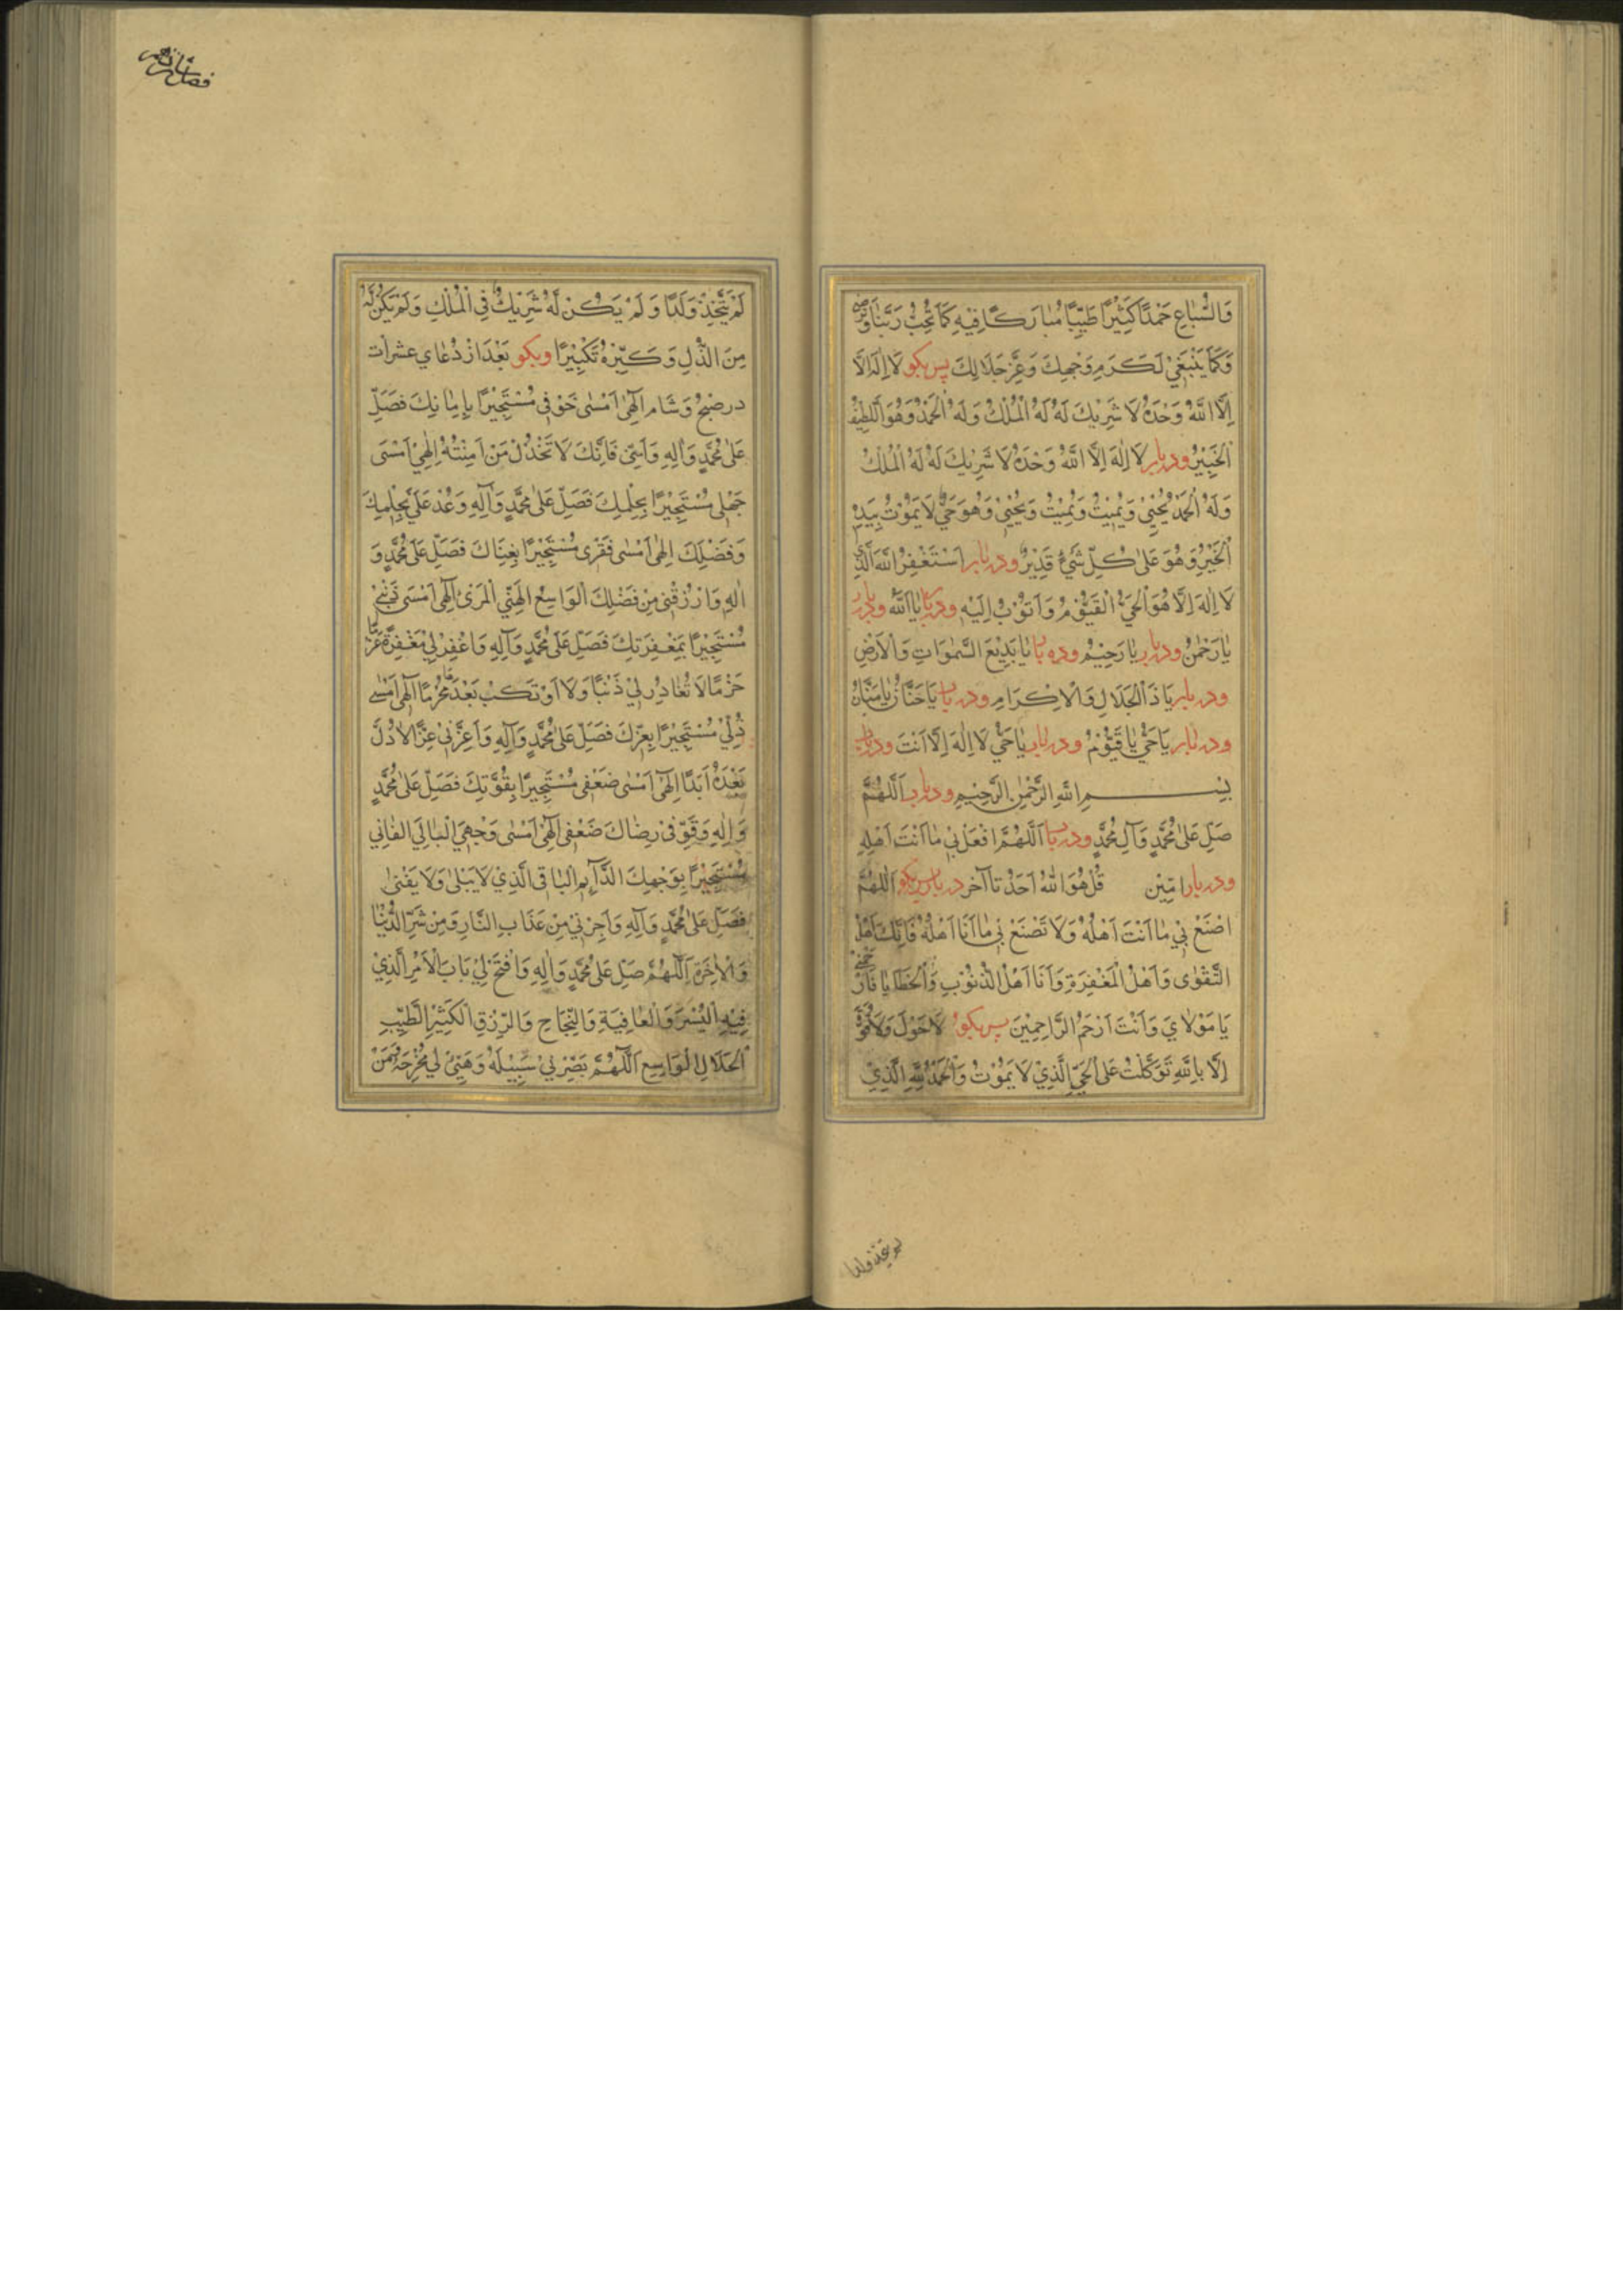 وَالسِّبٰاعِ حَمْدًا كَثِيْرًا طَيِّبًا مُبٰارَكًا فِيْهِ كَمٰا تُحِبُّ رَبَّنٰا وَتَرْضٰى
وَكَمٰا يَنْبَغِيْ لِكَرَمِ وَجْهِكَ وَعِزِّ جَلَالِكَ پس بكو لَا اِلٰهَ اِلَّا
اِلَّا اللّٰهُ وَحْدَهُ لَا شَرِيْكَ لَهُ لَهُ الْمُلْكُ وَلَهُ الْحَمْدُ وَهُوَ اللَّطِيْفُ
الْخَبِيْرُ وده بار لَا اِلٰهَ اِلَّا اللّٰهُ وَحْدَهُ لَا شَرِيْكَ لَهُ لَهُ الْمُلْكُ
وَلَهُ الْحَمْدُ يُحْيِيْ وَيُمِيْتُ وَيُمِيْتُ وَيُحْيِيْ وَهُوَ حَيٌّ لَا يَمُوْتُ بِيَدِهِ
الْخَيْرُ وَهُوَ عَلٰى كُلِّ شَيْءٍ قَدِيْرٌ وده بار اَسْتَغْفِرُ اللّٰهَ الَّذِيْ
لَا اِلٰهَ اِلَّا هُوَ الْحَيُّ الْقَيُّوْمُ وَاَتُوْبُ اِلَيْهِ وده بار يٰا اَللّٰهُ وده بار
يٰا رَحْمٰنُ وده بار يٰا رَحِيْمُ وده بار يٰا بَدِيْعَ السَّمٰوَاتِ وَالْاَرْضِ
وده بار يَا ذَا الْجَلَالِ وَالْاِكْرَامِ وده بار يَا حَنَّانُ يٰا مَنَّانُ
وده بار يَا حَيُّ يٰا قَيُّوْمُ وده بار يٰا حَيُّ لَا اِلٰهَ اِلَّا اَنْتَ وده بار
بِسْمِ اللّٰهِ الرَّحْمٰنِ الرَّحِيْمِ وده بار اَللّٰهُمَّ
صَلِّ عَلٰى مُحَمَّدٍ وَآلِ مُحَمَّدٍ وده بار اَللّٰهُمَّ افْعَلْ بِيْ مٰا اَنْتَ اَهْلُهُ
وده بار اٰمِيْن قُلْ هُوَ اللّٰهُ اَحَدٌ تا آخر ده بار پس بكو اَللّٰهُمَّ
اصْنَعْ بِيْ مٰا اَنْتَ اَهْلُهُ وَلَا تَصْنَعْ بِيْ مٰا اَنَا اَهْلُهُ فَاِنَّكَ اَهْلُ
التَّقْوٰى وَاَهْلُ الْمَغْفِرَةِ وَاَنَا اَهْلُ الذُّنُوْبِ وَالْخَطٰايٰا فَارْحَمْنِيْ
يٰا مَوْلٰايَ وَاَنْتَ اَرْحَمُ الرَّاحِمِيْنَ پس بكو لَا حَوْلَ وَلَا قُوَّةَ
اِلَّا بِاللّٰهِ تَوَكَّلْتُ عَلَى الْحَيِّ الَّذِيْ لَا يَمُوْتُ وَالْحَمْدُ لِلّٰهِ الَّذِيْ
لم يتخذ ولدا
لَمْ يَتَّخِذْ وَلَدًا وَلَمْ يَكُنْ لَهُ شَرِيْكٌ فِي الْمُلْكِ وَلَمْ يَكُنْ لَهُ
مِنَ الذُّلِّ وَكَبِّرْهُ تَكْبِيْرًا وبكو بَعْدَ از دُعٰاي عشرات
در صُبْحُ وَشَام اِلٰهِيْ اَمْسٰى خَوْفِيْ مُسْتَجِيْرًا بِاِمٰانِكَ فَصَلِّ
عَلٰى مُحَمَّدٍ وَاٰلِهِ وَاٰمِنِّيْ فَاِنَّكَ لَا تَخْذُلُ مَنْ اٰمَنْتَهُ اِلٰهِيْ اَمْسَى
جَهْلِيْ مُسْتَجِيْرًا بِحِلْمِكَ فَصَلِّ عَلٰى مُحَمَّدٍ وَآلِهِ وَعُدْ عَلَيَّ بِحِلْمِكَ
وَفَضْلِكَ اِلٰهِيْ اَمْسٰى فَقْرِيْ مُسْتَجِيْرًا بِغِنَاكَ فَصَلِّ عَلٰى مُحَمَّدٍ وَ
اٰلِهِ وَارْزُقْنِيْ مِنْ فَضْلِكَ الْوَاسِعِ الْهَنِيْءِ الْمَرِيْءِ اِلٰهِيْ اَمْسَى ذَنْبِيْ
مُسْتَجِيْرًا بِمَغْفِرَتِكَ فَصَلِّ عَلٰى مُحَمَّدٍ وَآلِهِ وَاغْفِرْ لِيْ مَغْفِرَةً عَزْمًا
حَزْمًا لَا تُغٰادِرُ لِيْ ذَنْبًا وَلَا اَرْتَكِبُ بَعْدَهَا مُحَرَّمًا اِلٰهِيْ اَمْسٰى
ذُلِّيْ مُسْتَجِيْرًا بِعِزِّكَ فَصَلِّ عَلٰى مُحَمَّدٍ وَآلِهِ وَاَعِزَّنِيْ عِزًّا لَا ذُلَّ
بَعْدَهُ اَبَدًا اِلٰهِيْ اَمْسٰى ضَعْفِيْ مُسْتَجِيْرًا بِقُوَّتِكَ فَصَلِّ عَلٰى مُحَمَّدٍ
وَاٰلِهِ وَقَوِّ فِيْ رِضٰاكَ ضَعْفِيْ اِلٰهِيْ اَمْسٰى وَجْهِيَ الْبٰالِي الْفٰانِي
مُسْتَجِيْرًا بِوَجْهِكَ الدَّآئِمِ الْبٰاقِي الَّذِيْ لَا يَبْلٰى وَلَا يَفْنٰى
فَصَلِّ عَلٰى مُحَمَّدٍ وَآلِهِ وَاَجِرْنِيْ مِنْ عَذَابِ النَّارِ وَمِنْ شَرِّ الدُّنْيٰا
وَالْاٰخِرَةِ اَللّٰهُمَّ صَلِّ عَلٰى مُحَمَّدٍ وَاٰلِهِ وَافْتَحْ لِيْ بَابَ الْاَمْرِ الَّذِيْ
فِيْهِ الْيُسْرُ وَالْعٰافِيَةُ وَالنَّجَاحُ وَالرِّزْقِ الْكَثِيْرِ الطَّيِّبِ
الْحَلَالِ الْوَاسِعِ اَللّٰهُمَّ بَصِّرْنِيْ سَبِيْلَهُ وَهَيِّئْ لِيْ مَخْرَجَهُ وَمَنْ